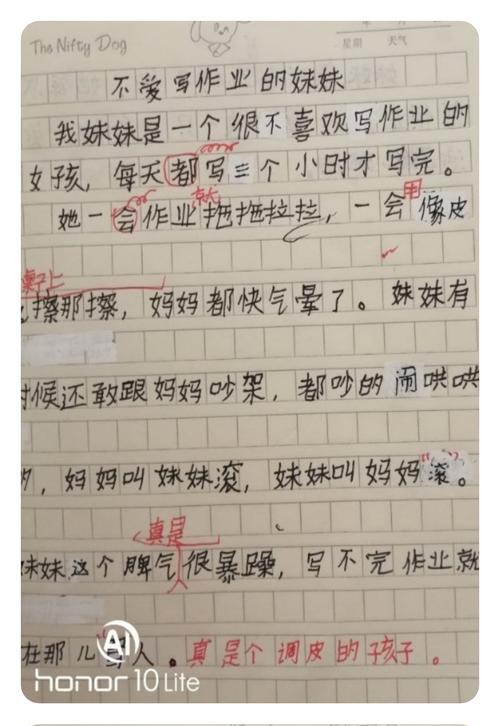 The Nifty Dog
年 月
星期 天气
不爱写作业的妹妹
我妹妹是一个很不喜欢写作业的
女孩，每天都写三个小时才写完。
就
用
她一会作业拖拖拉拉，一会像皮
桌子上
擦那擦，妈妈都快气晕了。妹妹有
时候还敢跟妈妈吵架，都吵的闹哄哄
的，妈妈叫妹妹滚，妹妹叫妈妈“滚”。
真是
妹妹这个脾气很暴躁，写不完作业就
在那儿 人。真是个调皮的孩子。
AI
honor 10 Lite